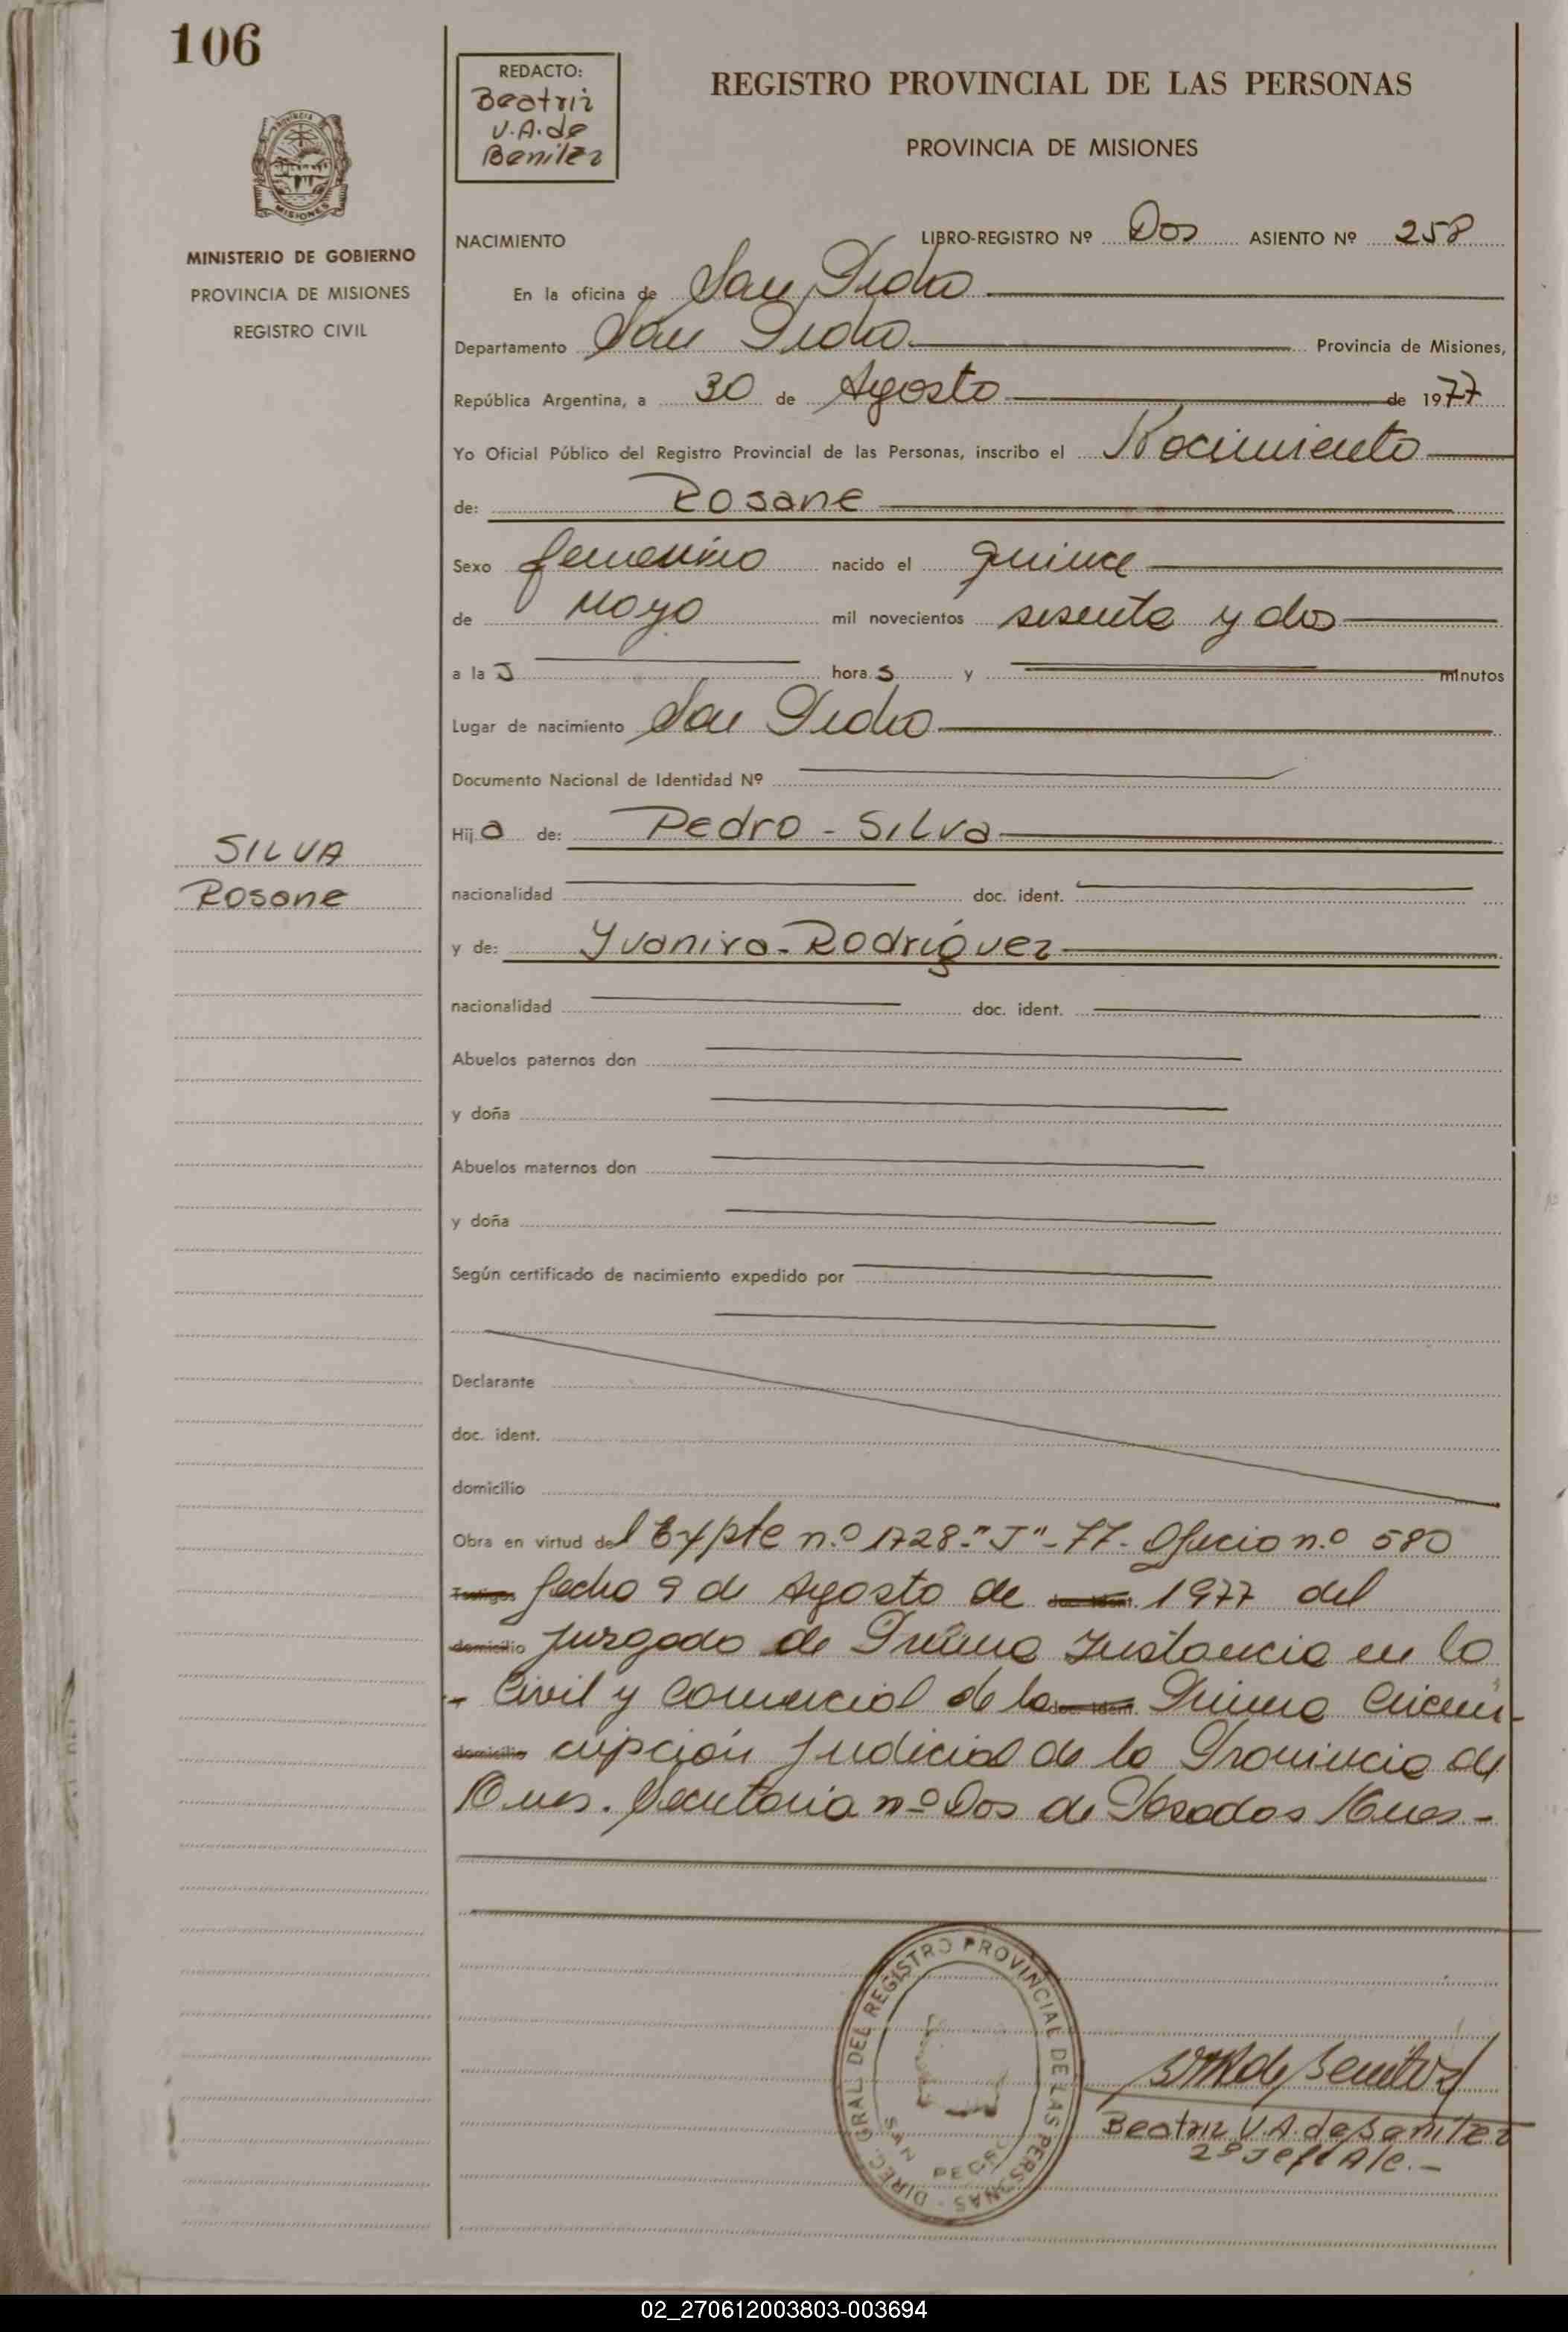 106
REDACTO:
Beatriz
V.A. de
Benitez
REGISTRO PROVINCIAL DE LAS PERSONAS
PROVINCIA DE MISIONES
MISIONES
MINISTERIO DE GOBIERNO
PROVINCIA DE MISIONES
REGISTRO CIVIL
NACIMIENTO LIBRO-REGISTRO Nº Dos ASIENTO Nº 258
En la oficina de San Pedro
Departamento San Pedro Provincia de Misiones,
República Argentina, a 30 de Agosto de 1977
Yo Oficial Público del Registro Provincial de las Personas, inscribo el Nacimiento
de: Rosane
Sexo femenino nacido el quince
de Mayo mil novecientos sesenta y dos
a la s hora s y minutos
Lugar de nacimiento San Pedro
Documento Nacional de Identidad Nº
Hij a de: Pedro - Silva
SILVA
Rosane
nacionalidad doc. ident.
y de: Yvanira - Rodríguez
nacionalidad doc. ident.
Abuelos paternos don
y doña
Abuelos maternos don
y doña
Según certificado de nacimiento expedido por
Declarante
doc. ident.
domicilio
Obra en virtud del Expte n.º 1728-"J"-77- Oficio n.º 580
Testigos fecha 9 de Agosto de doc. ident. 1977 del
domicilio Juzgado de Primera Instancia en lo
- Civil y Comercial de la doc. ident. Primera Circuns-
domicilio cripción Judicial de la Provincia de
Mnes. Secretaria nº Dos de Posadas Mnes.-
DIREC. GRAL. DEL REGISTRO PROVINCIAL DE LAS PERSONAS -
SAN PEDRO
Beatriz V.A. de Benitez
2º Jefe A/c.-
02_270612003803-003694